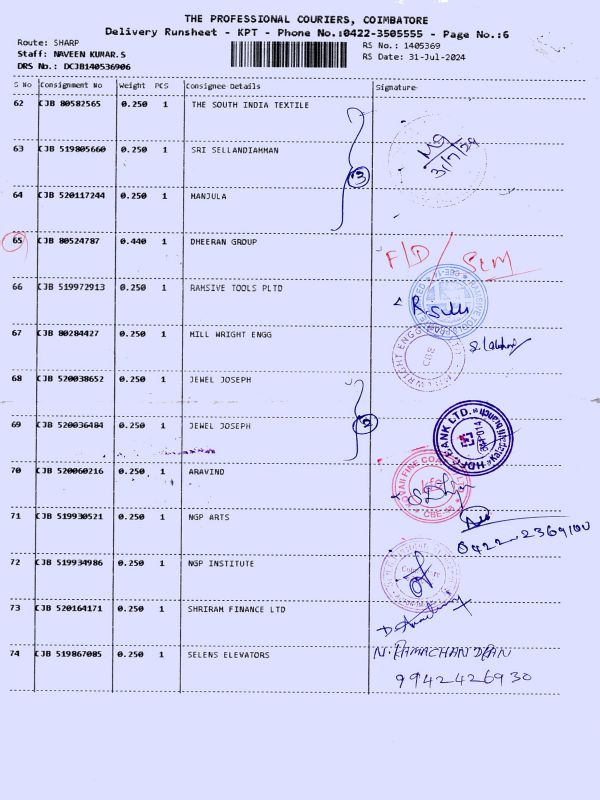 THE PROFESSIONAL COURIERS, COIMBATORE
Delivery Runsheet - KPT - Phone No.:0422-3505555 - Page No.:6
Route: SHARP
Staff: NAVEEN KUMAR.S
DRS No.: DCJB140536906
RS No.: 1405369
RS Date: 31-Jul-2024
S No Consignment No Weight PCS Consignee Details Signature
62 CJB 80582565 0.250 1 THE SOUTH INDIA TEXTILE
63 CJB 519805660 0.250 1 SRI SELLANDIAMMAN
31/7/24
3
64 CJB 520117244 0.250 1 MANJULA
65 CJB 80524787 0.440 1 DHEERAN GROUP
F/D/
66 CJB 519972913 0.250 1 RAMSIVE TOOLS PLTD
67 CJB 80284427 0.250 1 MILL WRIGHT ENGG
CBE
68 CJB 520038652 0.250 1 JEWEL JOSEPH
69 CJB 520036484 0.250 1 JEWEL JOSEPH
2
HDFC BANK LTD.
70 CJB 520060216 0.250 1 ARAVIND
71 CJB 519930521 0.250 1 NGP ARTS
0422-2369100
72 CJB 519934986 0.250 1 NGP INSTITUTE
73 CJB 520164171 0.250 1 SHRIRAM FINANCE LTD
74 CJB 519867085 0.250 1 SELENS ELEVATORS
N. RAMACHANDRAN
9942426930